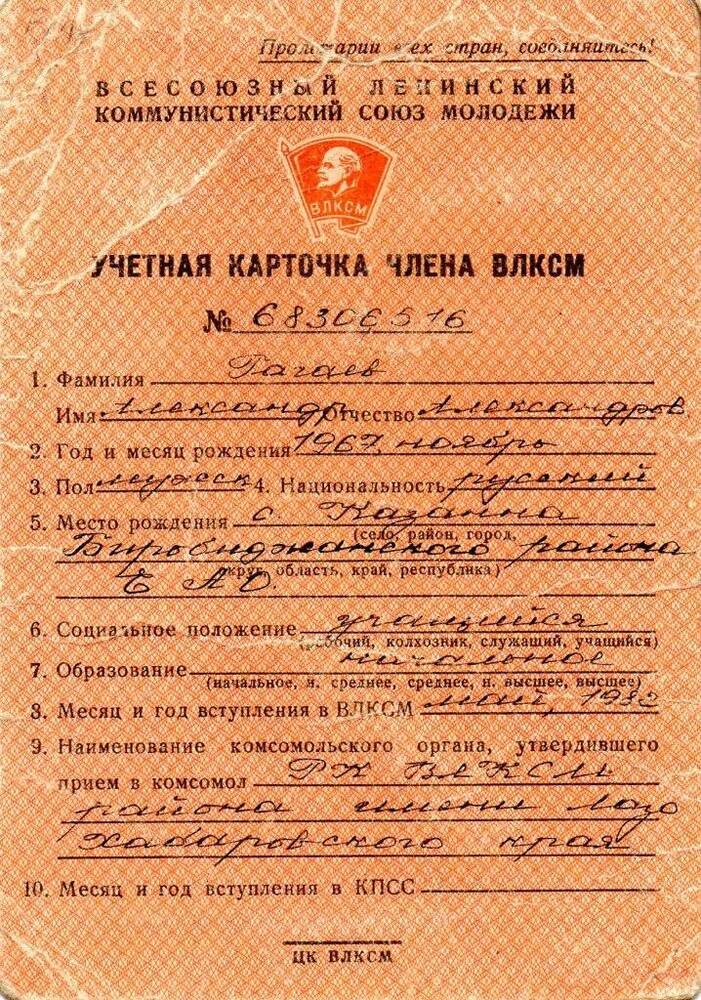 Пролетарии всех стран, соединяйтесь!
ВСЕСОЮЗНЫЙ ЛЕНИНСКИЙ
КОММУНИСТИЧЕСКИЙ СОЮЗ МОЛОДЕЖИ
ВЛКСМ
УЧЕТНАЯ КАРТОЧКА ЧЛЕНА ВЛКСМ
№ 68306516
1. Фамилия Гагаев
Имя Александр Отчество Александров
2. Год и месяц рождения 1967, ноябрь
3. Пол мужск 4. Национальность русский
5. Место рождения с. Казанка
(село, район, город,
Биробиджанского района
округ, область, край, республика)
Е АО.
6. Социальное положение учащийся
(рабочий, колхозник, служащий, учащийся)
7. Образование начальное
(начальное, н. среднее, среднее, н. высшее, высшее)
8. Месяц и год вступления в ВЛКСМ май, 1982
9. Наименование комсомольского органа, утвердившего
прием в комсомол РК ВЛКСМ
района имени Лазо
Хабаровского края
10. Месяц и год вступления в КПСС
ЦК ВЛКСМ